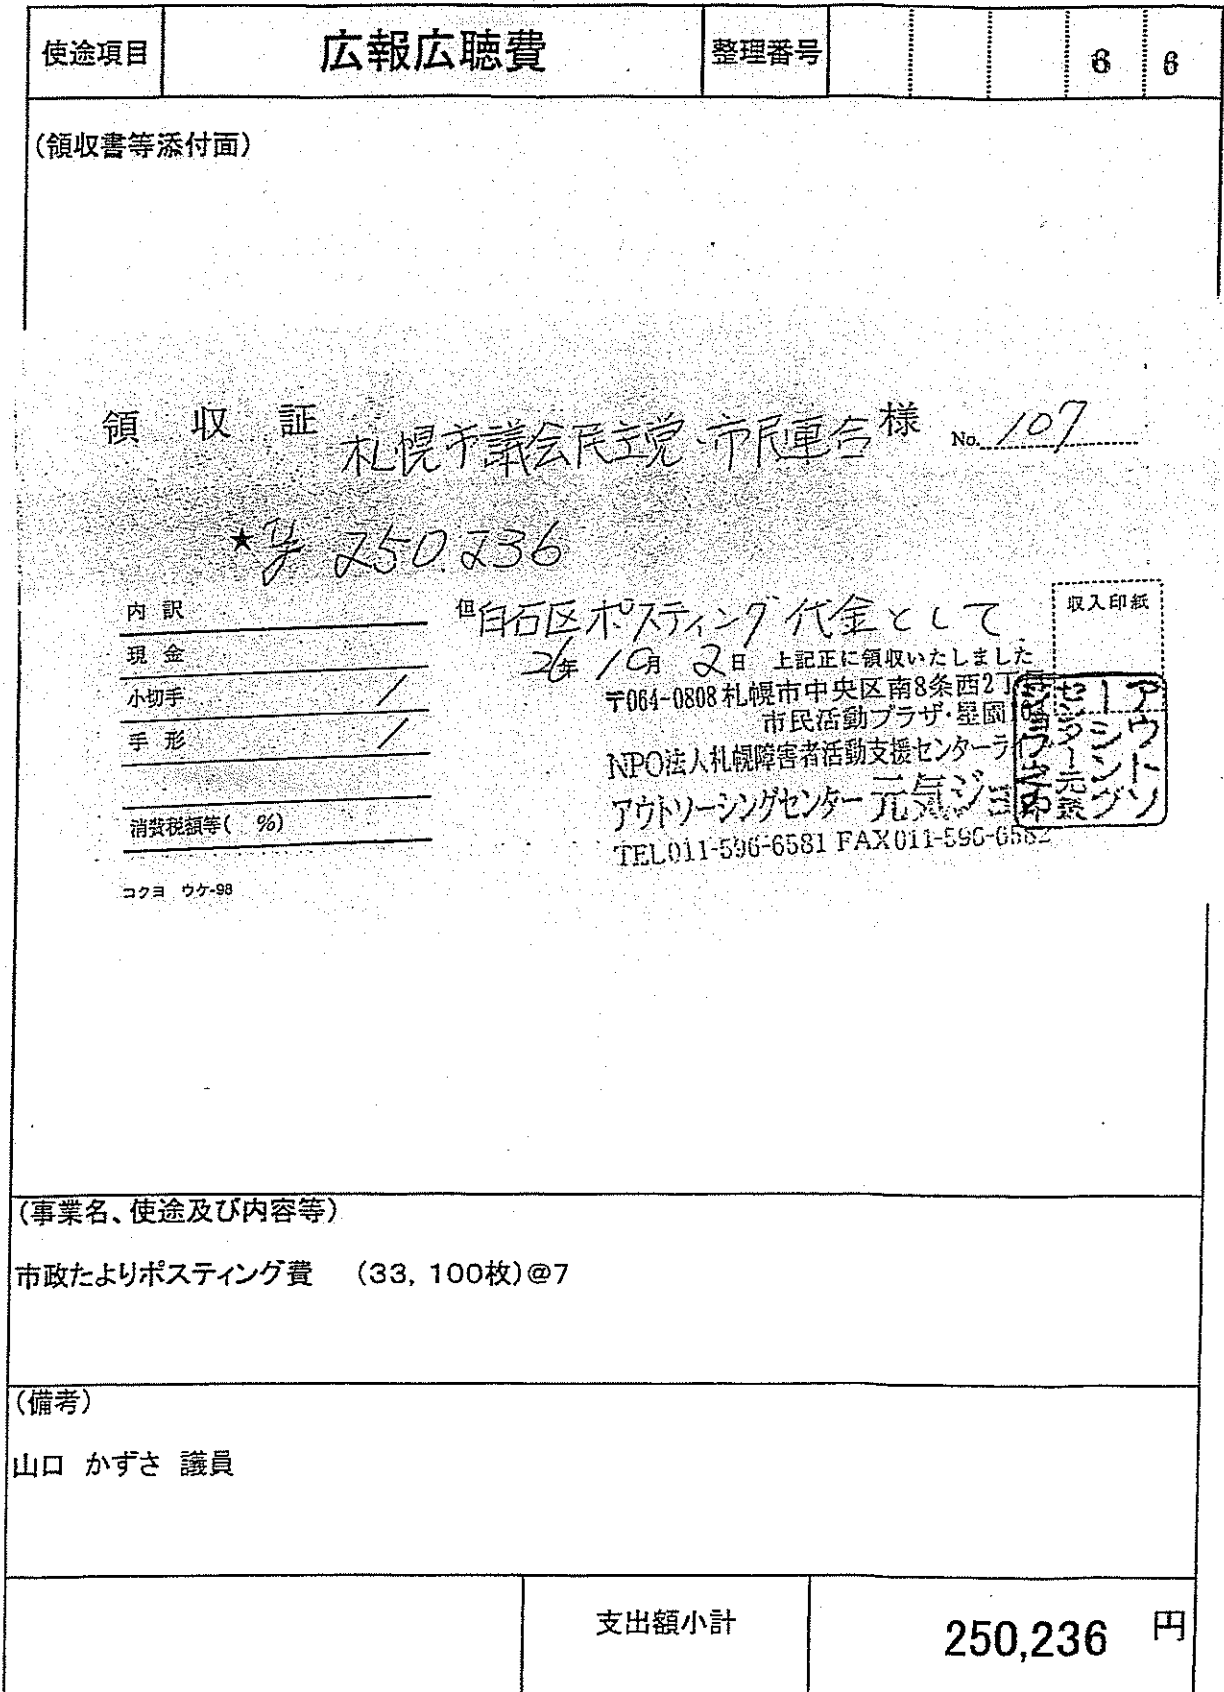 使途項目 広報広聴費 整理番号 6 6
(領収書等添付面)
領 収 証 札幌市議会民主党・市民連合 様 No. 107
★ ¥ 250.236
内 訳
現 金
小切手
手 形
消費税額等( %)
コクヨ ウケ-98
但 白石区ポスティング代金として
26年 10月 2日 上記正に領収いたしました
収入印紙
〒064-0808 札幌市中央区南8条西2丁
市民活動プラザ・星園
NPO法人札幌障害者活動支援センターライ
アウトソーシングセンター 元気ジョ
TEL011-596-6581 FAX011-596-6582
アウトソ
ーシング
センター元気
(事業名、使途及び内容等)
市政たよりポスティング費 (33,100枚)@7
(備考)
山口 かずさ 議員
支出額小計 250,236 円